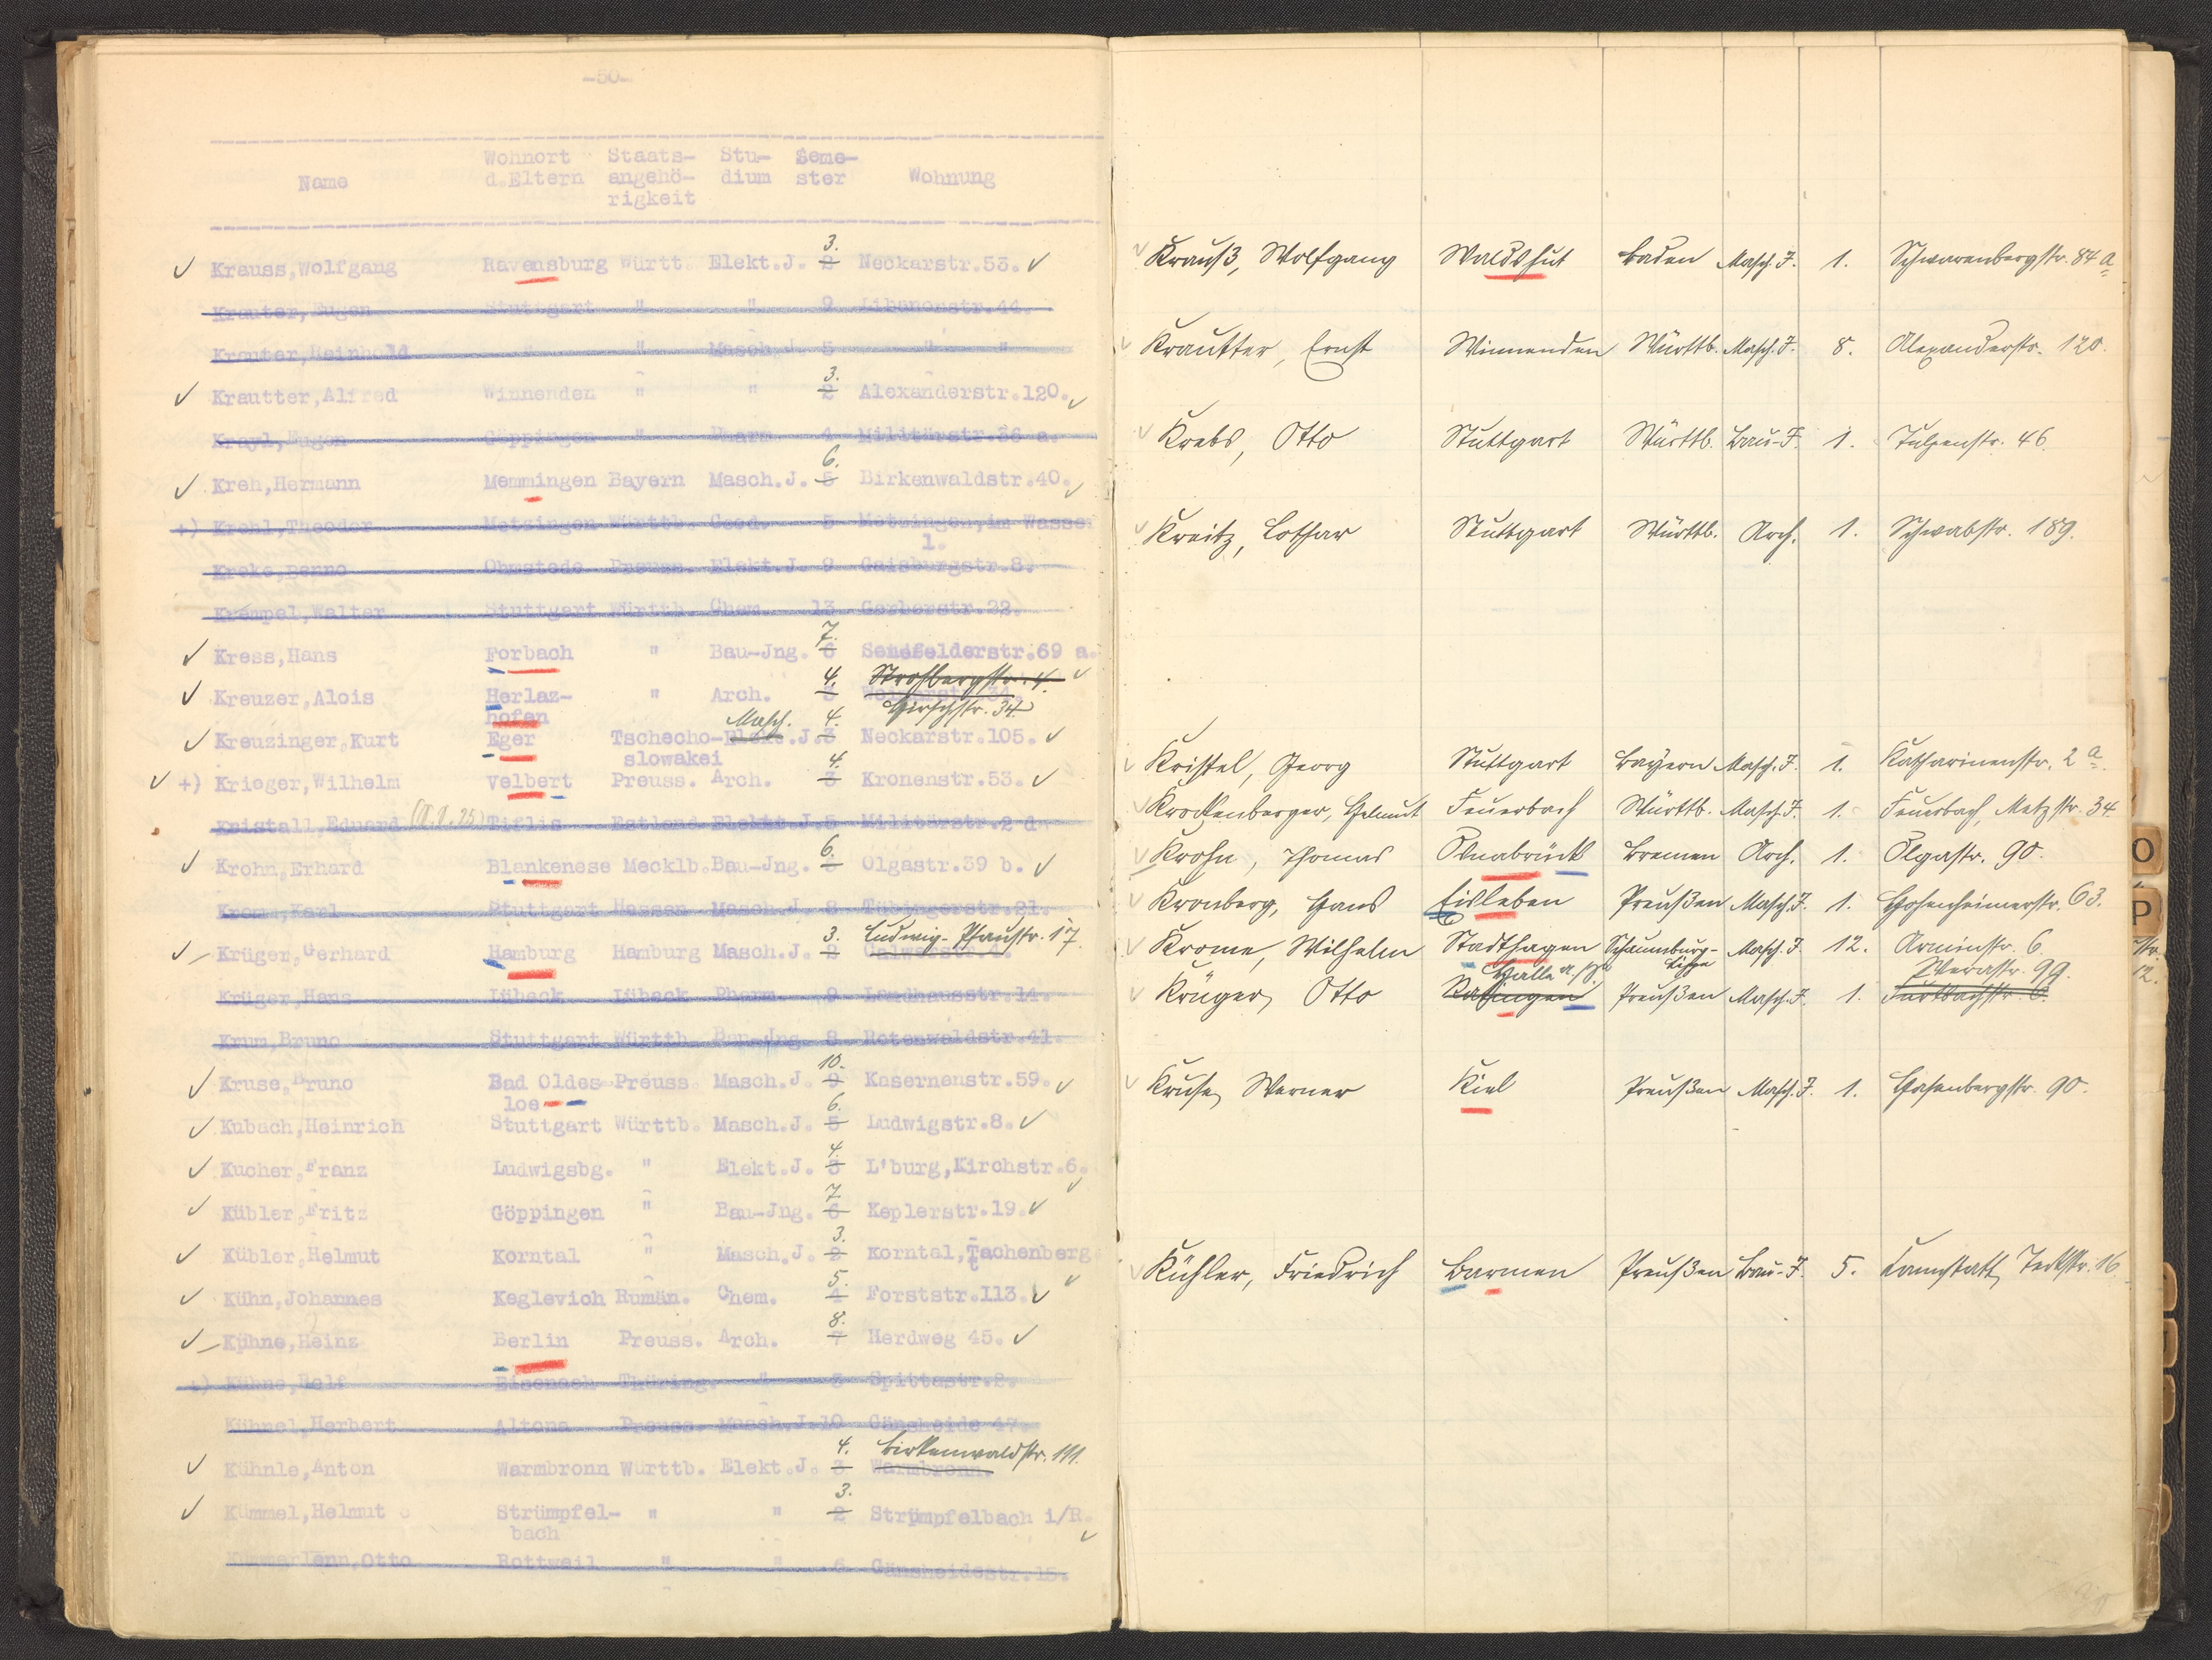 -50-
Name Wohnort d.Eltern Staats-angehö-rigkeit Stu-dium Seme-ster Wohnung
✓ Krauss,Wolfgang Ravensburg Württ. Elekt.J. 3. 2 Neckarstr.53. ✓
Krauter,Eugen Stuttgart " " 9 Libanonstr.44.
Krauter,Reinhold " " Masch.J. 5 " "
✓ Krautter,Alfred Winnenden " " 3. 2 Alexanderstr.120. ✓
Krayl,Eugen Göppingen " Pharm. 4 Militärstr.36 a.
✓ Kreh,Hermann Memmingen Bayern Masch.J. 6. 5 Birkenwaldstr.40. ✓
+) Krehl,Theodor Metzingen Württb. Geod. 5 Metzingen,im Wasse
1.
Kreke,Benno Ohmstede Preuss. Elekt.J. 9 Gaisburgstr.8.
Krempel,Walter Stuttgart Württb. Chem. 13 Gerberstr.22.
✓ Kress,Hans Forbach " Bau-Jng. 7. 6 Senefelderstr.69 a. ✓
✓ Kreuzer,Alois Herlaz-hofen " Arch. 4. 3 Strohbergstr. 4. Hirschstr. 34
✓ Kreuzinger,Kurt Eger Tschecho-slowakei Masch. Elekt.J. 4. 3 Neckarstr.105. ✓
✓ +) Krieger,Wilhelm Velbert Preuss. Arch. 4. 3 Kronenstr.53. ✓
Kristall,Eduard Tiflis Estland Elektt.J. 5 Militärstr.2 d
✓ Krohn,Erhard Blankenese Mecklb. Bau-Jng. 6. 5 Olgastr.39 b. ✓
Kromm,Karl Stuttgart Hessen Masch.J. 8 Tübingerstr.21.
✓ Krüger,Gerhard Hamburg Hamburg Masch.J. 3. 2 Calwerstr.4. Ludwig-Pfaustr. 17.
Krüger,Hans Lübeck Lübeck Pharm. 9 Landhausstr.14.
Krum,Bruno Stuttgart Württb. Bau-Jng. 8 Rotenwaldstr.41.
✓ Kruse,Bruno Bad Oldes-loe Preuss. Masch.J. 10. 9 Kasernenstr.59. ✓
✓ Kubach,Heinrich Stuttgart Württb. Masch.J. 6. 5 Ludwigstr.8. ✓
✓ Kucher,Franz Ludwigsbg. " Elekt.J. 4. 3 L'burg,Kirchstr.6. ✓
✓ Kübler,Fritz Göppingen " Bau-Jng. 7 6 Keplerstr.19. ✓
✓ Kübler,Helmut Korntal " Masch.J. 3. 2 Korntal,Tachenberg ✓
✓ Kühn,Johannes Keglevich Rumän. Chem. 5. 4 Forststr.113. ✓
✓ Kühne,Heinz Berlin Preuss. Arch. 8. 7 Herdweg 45. ✓
+) Kühne,Rolf Eisenach Thüring. " 3 Spittastr.2.
Kühnel,Herbert Altona Preuss. Masch.J. 10 Gänsheide 47.
✓ Kühnle,Anton Warmbronn Württb. Elekt.J. 4. 3 Warmbronn. Birkenwaldstr. 111.
✓ Kümmel,Helmut Strümpfel-bach " " 3. 2 Strümpfelbach i/R. ✓
Otto Rottweil " " 6 Gänsheidestr.15.
Krauß, Wolfgang Waldshut Baden Masch. J. 1. Schwarenbergstr. 84 a
Krautter, Ernst Winnenden Württb. Masch. J. 8. Alexanderstr. 120.
Krebs, Otto Stuttgart Württb. Bau-J. 1. Tulpenstr. 46
Kreitz, Lothar Stuttgart Württb. Arch. 1. Schwabstr. 189.
Kristel, Georg Stuttgart Bayern Masch. J. 1. Katharinenstr. 2 a.
Krockenberger, Helmut Feuerbach Württb. Masch. J. 1. Feuerbach, Metzstr. 34
Krohn, Thomas Osnabrück Bremen Arch. 1. Olgastr. 90.
Kronberg, Hans Eisleben Preußen Masch. J. 1. Hohenheimerstr. 63.
Krome, Wilhelm Stadthagen Schaumburg-Lippe Masch. J. 12. Arminstr. 6.
Krüger, Otto Ratingen Halle a./S. Preußen Masch. J. 1. Furtbachstr. 6. Werastr. 99.
Kruse, Werner Kiel Preußen Masch. J. 1. Hasenbergstr. 90.
Kühler, Friedrich Barmen Preußen Bau-J. 5. Cannstatt, Teckstr. 16
O
P
str.
12.